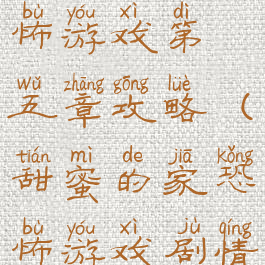 bù yóu xì dì
怖游戏第
wǔ zhāng gōng lüè
五章攻略（
tián mì de jiā kǒng
甜蜜的家恐
bù yóu xì jù qíng
怖游戏剧情